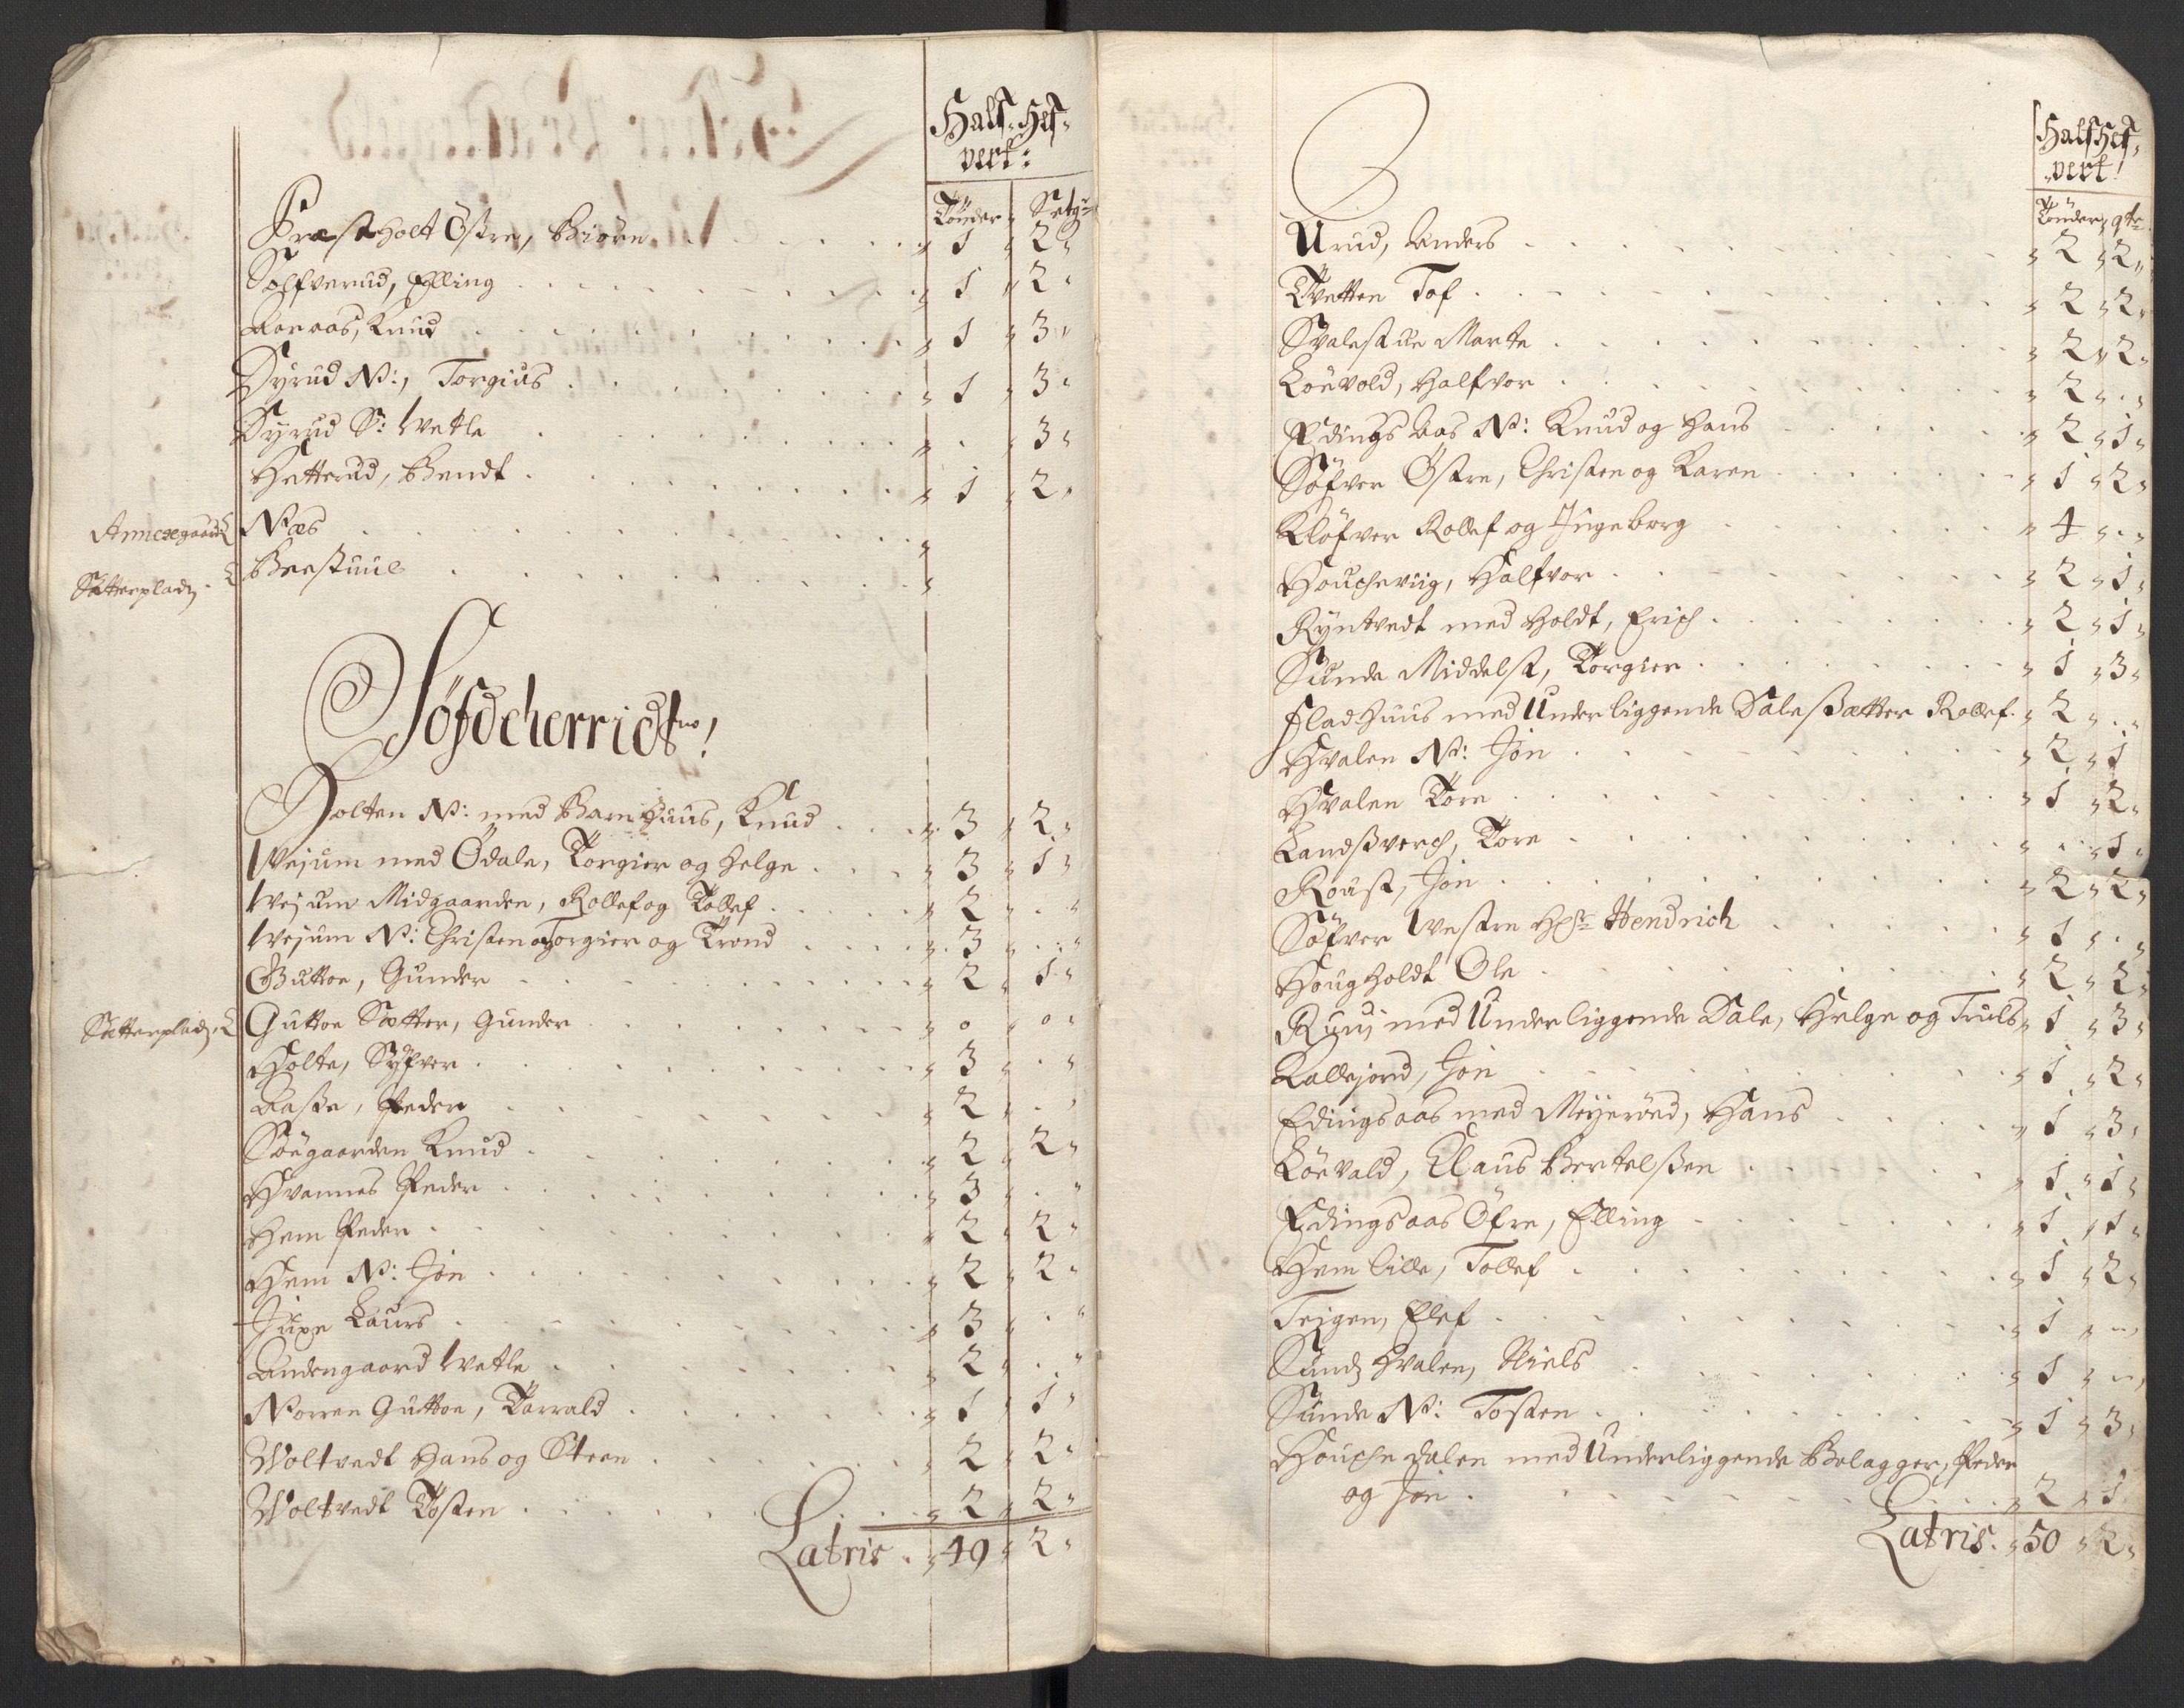 Half-Hef-
vert:
Tönder Setgr
Præstholt Östre, Biörn 1 2
Solfverud, Elling 1 2
Aaraas, Knud 1 3
Dyrud N:, Torgius 1 3
Dyrud S: Wetle . 3
Hetterud, Bendt 1 2
Annexgaard Næs
Sætterplads Beestuul
Söfdeherridt!
Holten N: med Barnhuus, Knud 3 2
Wejum med Ödale, Torgier og Helge 3 1
Wejum Midgaarden, Rollef og Tollef 2 .
Wejum N: Christen og Torgier og Trond 3 .
Guttoe, Gunder 2 1
Sætterplads Guttoe Sætter, Gunder 0 0
Holte, Syfver 3 .
Aasse, Peder 2 .
Söegaarden Knud 2 2
Hvannes Peder 3 .
Hem Peder 2 2
Hem N: Jon 2 2
Jupe Laurs 3 .
Andengaard Wetle 2 .
Norre Guttoe, Tarrald 1 1
Woltvedt Hans og Steen 2 2
Woltvedt Tosten 2 2
Latris 49 2
Half Hef-
vert!
Tönder, qtr
Urud, Anders 2 2
Tvetten Tof 2 2
Svalestue Marte 2 2
Löevold, Halfvor 2 .
Edings Aas N: Knud og Hans 2 1
Söfver Östre, Christen og Karen 1 2
Klöfver Rollef og Ingeborg 4 .
Houcheviig, Halfvor 2 1
Ryntvedt med Holdt, Erich 2 1
Sunde Middelst, Torgier 1 3
Fladhuus med Underliggende Dalessætter Rollef 2 .
Hvalen N: Jon 2 1
Hvalen Tore 1 2
Landssverch, Tore . 1
Roust, Jon 2 2
Söfver Westre Hendrich 1 .
Hougholdt Ole 2 2
Ruuj med Underliggende Dale, Helge og Truls 1 3
Kallejord, Jon 1 2
Edingsaas med Meyeröed, Hans 1 3
Löevald, Claus Bertelssen 1 1
Edingsaas Öfre, Elling 1 1
Hem lille, Tollef 1 2
Teigen, Elef 1
Sunds Hvalen, Niels 1
Sunde N: Tosten 1 3
Houchedalen med Underliggende Bolagger, Peder
og Jon 2 1
Latris 50 2